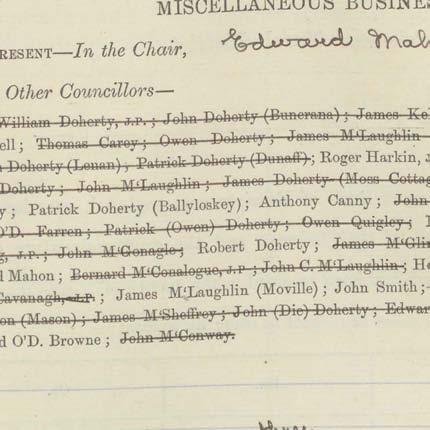 MISCELLANEOUS BUSINES
RESENT—In the Chair, Edward Mah
Other Councillors—
William Doherty, J.P.; John Doherty (Buncrana); James Ke
ell; Thomas Carey; Owen Doherty; James M‘Laughlin
Doherty (Lenan), Patrick Doherty (Dunaff); Roger Harkin, J
Doherty; John M‘Laughlin; James Doherty (Moss Cottag
y; Patrick Doherty (Ballyloskey); Anthony Canny; John
O'D. Farren; Patrick (Owen) Doherty; Owen Quigley;
g, J.P.; John M‘Gonagle; Robert Doherty; James M‘Gli
d Mahon; Bernard M‘Conalogue, J.P; John C. M‘Laughlin; He
Cavanagh, J.P.; James M‘Laughlin (Moville); John Smith;
on (Mason); James M‘Sheffrey; John (Die) Doherty; Edwar
d O'D. Browne; John M‘Conway.